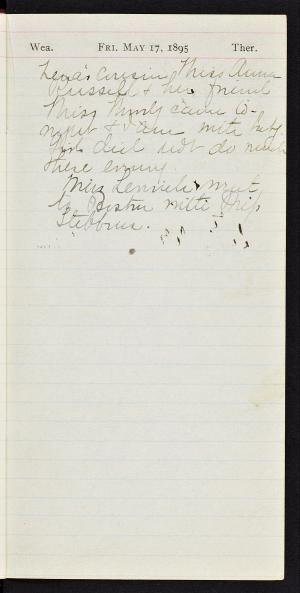 Wea. FRI. MAY 17, 1895 Ther.
Lena's Cousin Miss Anna
Russell & her friend
Miss came to-
night &
but did not do much
these evening.
Miss went
to Boston with Miss
Stebbins.